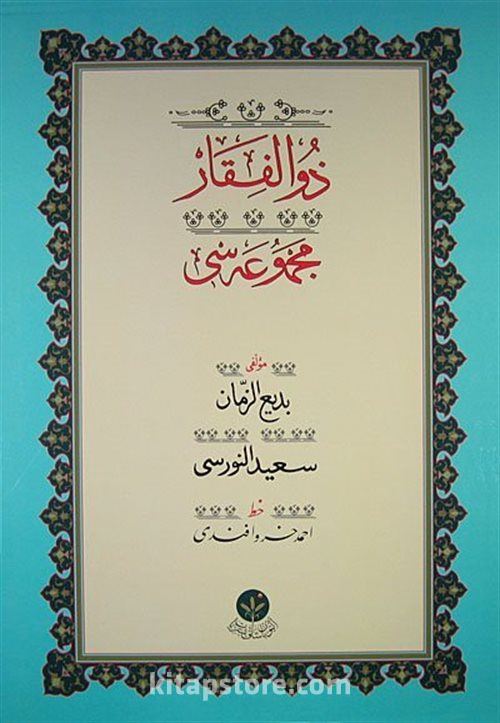 ذُوالْفِقَارْ
مَجْمُوعَه سِی
مؤلفی
بدیع الزمّان
سعید النورسی
خط
احمد خسرو افندی
kitapstore.com